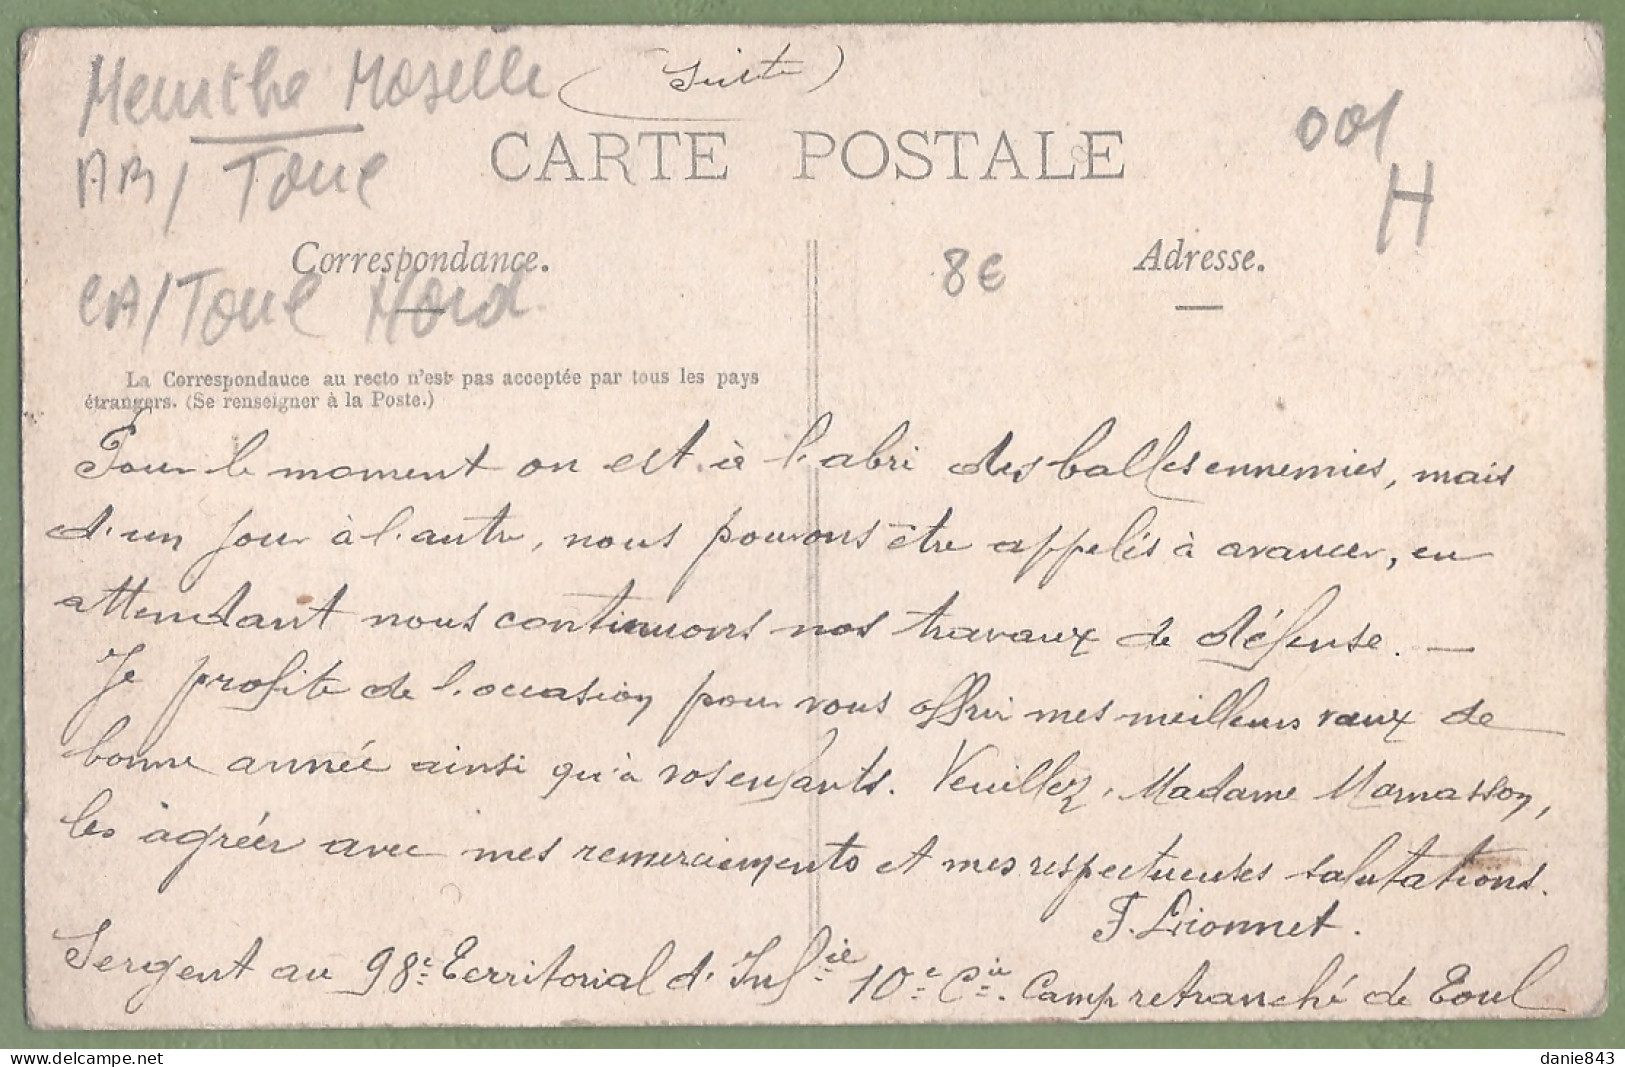 Meurthe Moselle
(Suite)
001
H
AR/ Toul
CARTE POSTALE
Correspondance.
Adresse.
8€
CA/Toul Nord
La Correspondance au recto n'est pas acceptée par tous les pays
étrangers. (Se renseigner à la Poste.)
Pour le moment on est à l'abri des balles ennemies, mais
d'un jour à l'autre, nous pouvons être appelés à avancer, en
attendant nous continuons nos travaux de défense. —
Je profite de l'occasion pour vous offrir mes meilleurs vœux de
bonne année ainsi qu'à vos enfants. Veuillez, Madame Marnasson,
les agréer avec mes remerciements et mes respectueuses salutations.
F. Lionnet.
Sergent au 98e Territorial d'Infie 10e Cie. Camp retranché de Toul
danie843